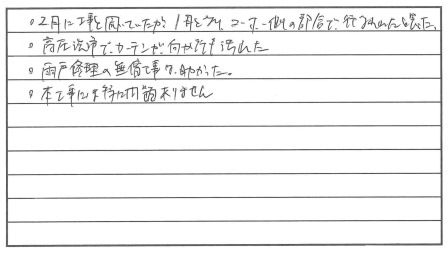 ・2月に工事と聞いていたが、1月となり、コーナー側の都合で行なわれた
・高圧洗浄でカーテンが何か所も汚れた
・雨戸修理の無償工事は助かった。
・本工事には特に問題ありません